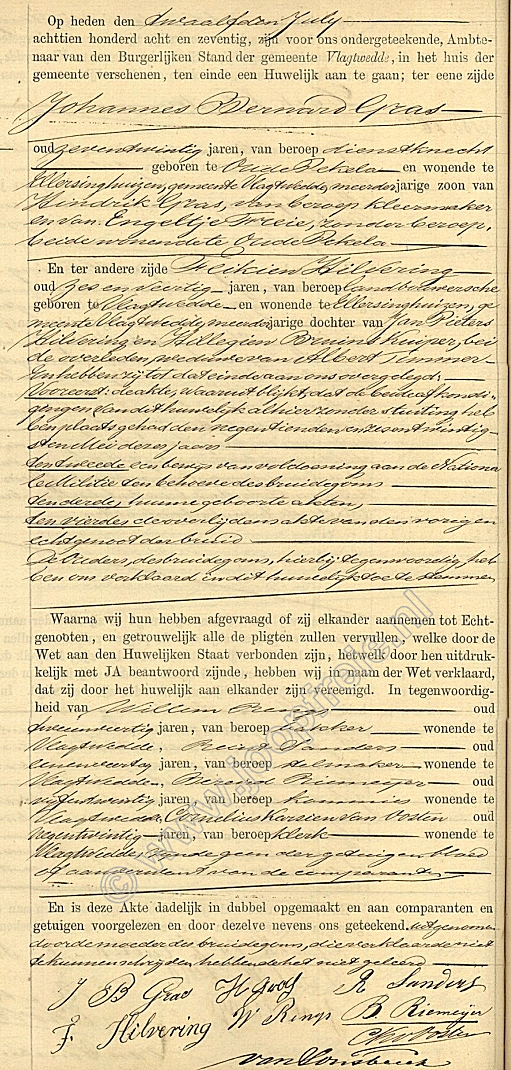 Op heden den twaalfden July
achttien honderd acht en zeventig, zijn voor ons ondergeteekende, Ambte-
naar van den Burgerlijken Stand der gemeente Vlagtwedde, in het huis der
gemeente verschenen, ten einde een Huwelijk aan te gaan; ter eene zijde
Johannes Bernard Gras
oud zevenentwintig jaren, van beroep dienstknecht
geboren te Oude Pekela en wonende te
Ellersinghuizen, gemeente Vlagtwedde, meerderjarige zoon van
Hindrik Gras, van beroep kleermaker
en van Engeltje Treie, zonder beroep,
beide wonende te Oude Pekela
En ter andere zijde Hilvering
oud zes en veertig jaren, van beroep landbouwersche
geboren te Vlagtwedde en wonende te Ellersinghuizen, ge
meente Vlagtwedde, meerderjarige dochter van Jan Pieters
Hilvering en Hillegien Bruins Kuiper, bei
de overleden, weduwe van Albert Timmer
En hebben zij tot dat einde aan ons overgelegd:
Vooreerst: de akte, waaruit blijkt, dat de beide afkondi-
gingen van dit huwelijk alhier zonder stuiting heb
ben plaats gehad den negentienden en zesentwintig-
sten Mei dezes jaars
ten tweede een bewijs van voldoening aan de Nationa
le Militie ten behoeve des bruidegoms
ten derde, hunne geboorte akten,
ten vierde, de overlijdensakte van den vorigen
echtgenoot der bruid
De Ouders, des bruidegoms, hierbij tegenwoordig, heb
ben ons verklaard in dit huwelijk toe te stemmen
Waarna wij hun hebben afgevraagd of zij elkander aannemen tot Echt-
genooten, en getrouwelijk alle de pligten zullen vervullen, welke door de
Wet aan den Huwelijken Staat verbonden zijn, hetwelk door hen uitdruk-
kelijk met JA beantwoord zijnde, hebben wij in naam der Wet verklaard,
dat zij door het huwelijk aan elkander zijn vereenigd. In tegenwoordig-
heid van Willem Rings oud
tweeenveertig jaren, van beroep bakker wonende te
Vlagtwedde, Reint Sanders oud
eenenveertig jaren, van beroep stelmaker wonende te
Vlagtwedde, Berend Riemeijer oud
vijfentwintig jaren, van beroep kommies wonende te
Vlagtwedde, Cornelius Karsien van Oosten oud
negentwintig jaren, van beroep klerk wonende te
Vlagtwedde, zijnde geen der getuigen bloed
of aanverwant van de comparanten
En is deze Akte dadelijk in dubbel opgemaakt en aan comparanten en
getuigen voorgelezen en door dezelve nevens ons geteekend, uitgenomen
door de moeder des bruidegoms, die verklaarde niet
te kunnen schrijven, hebbende het niet geleerd
J B Gras H Gras R Sanders
F. Hilvering W Rings B. Riemeijer
CKvOosten
van Lonsbeeck
© www.jooptreie.nl